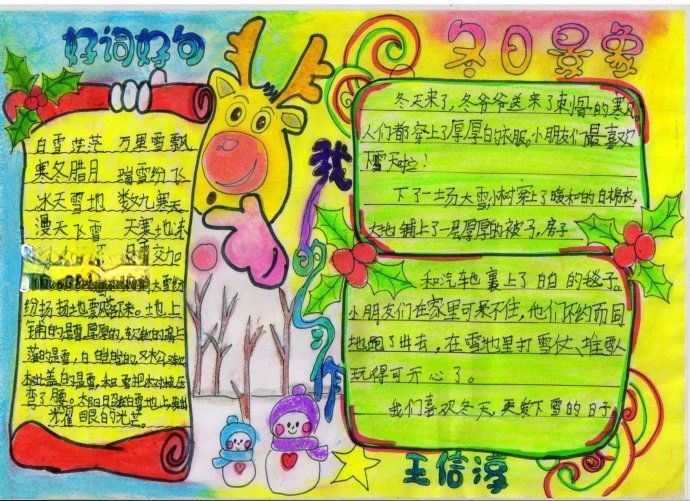 好词好句
白雪茫茫 万里雪飘
寒冬腊月 瑞雪纷飞
冰天雪地 数九寒天
漫天飞雪 天寒地冻
交加
大雪纷
纷扬扬地雪落下来。地上
铺的是雪,厚厚的,软软的;房上
落的是雪,白皑皑的,
盖的是雪,
弯了腰。
光耀眼的光芒。
我的习作
冬日景象
冬天来了,冬爷爷送来了刺骨的寒风,
人们都穿上了厚厚的衣服。小朋友们最喜欢
下雪天啦!
下了一场大雪,小树穿上了暖和的白棉衣,
大地铺上了一层厚厚的被子,房子
和汽车也裹上了白白的毯子。
小朋友们在家里可呆不住,他们不约而同
地跑了出去,在雪地里打雪仗、堆雪人
玩得可开心了。
我们喜欢冬天,更爱下雪的日子。
王信淳